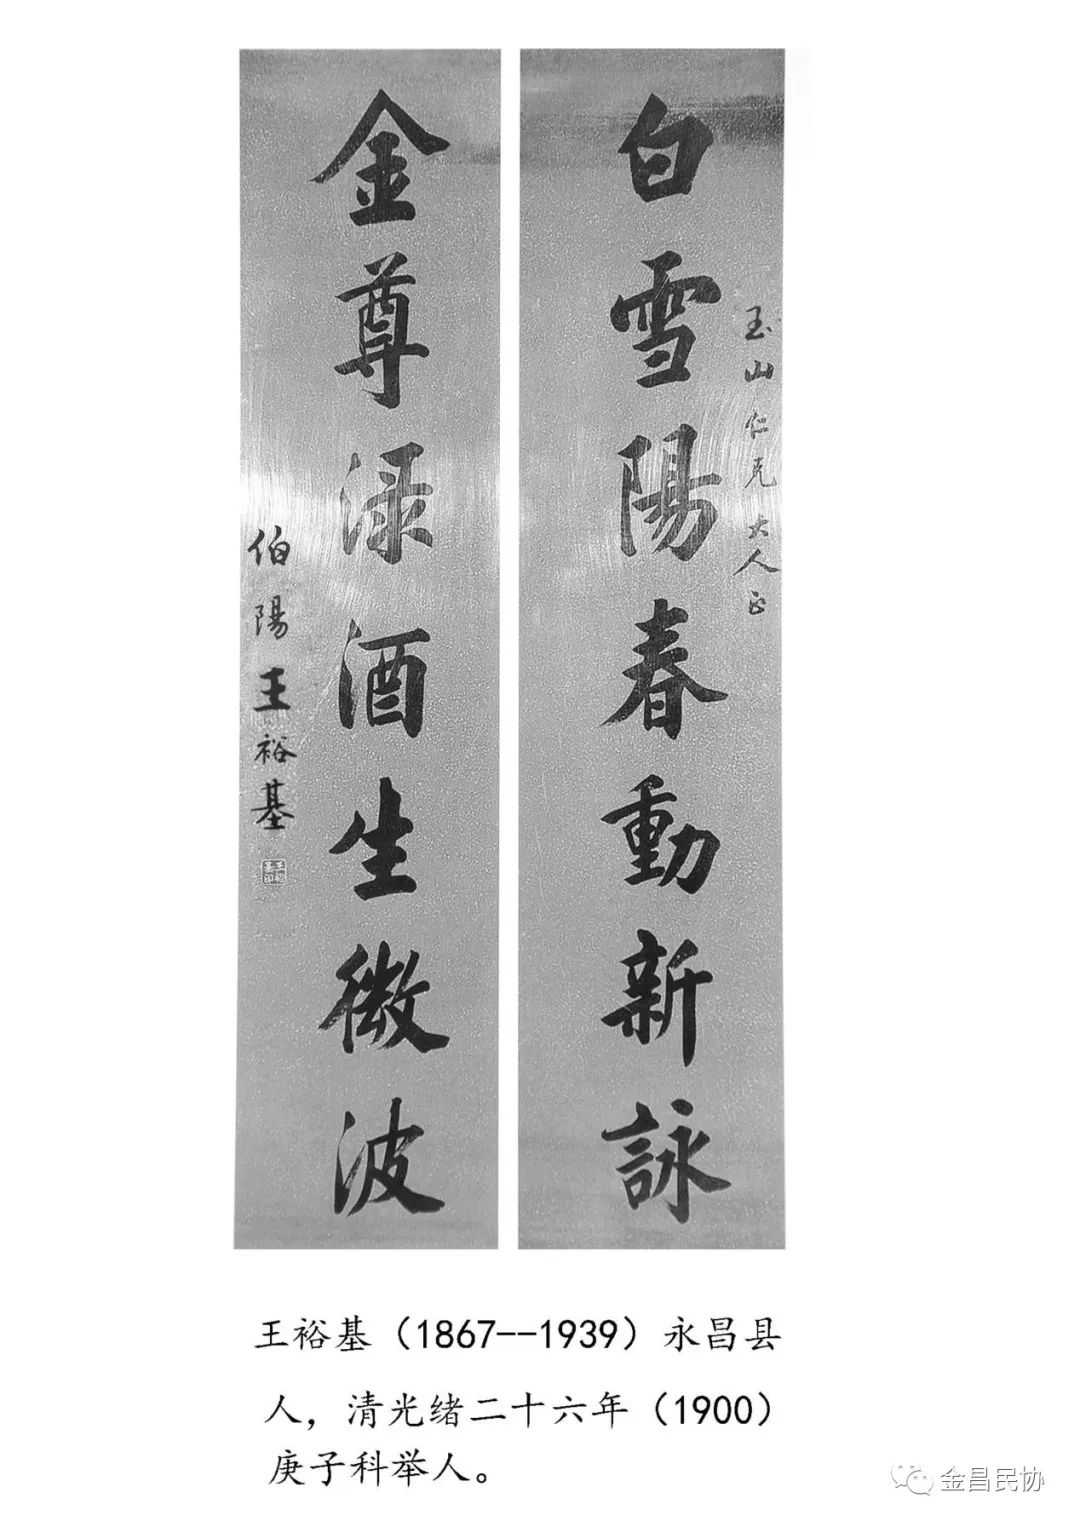 玉山仁兄大人正
白雪陽春動新詠
金尊渌酒生微波
伯陽王裕基
王裕基（1867--1939）永昌县
人，清光绪二十六年（1900）
庚子科举人。
金昌民协